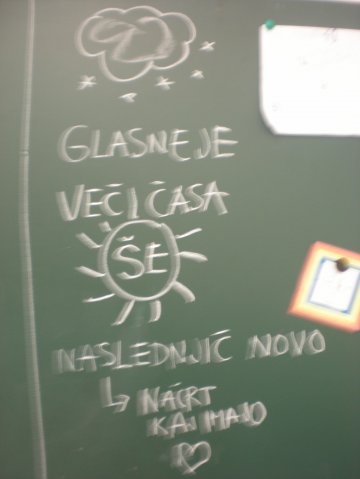 GLASNEJE
VEČ ČASA
ŠE
NASLEDNJIČ NOVO
NAČRT
KAJ IMAJO